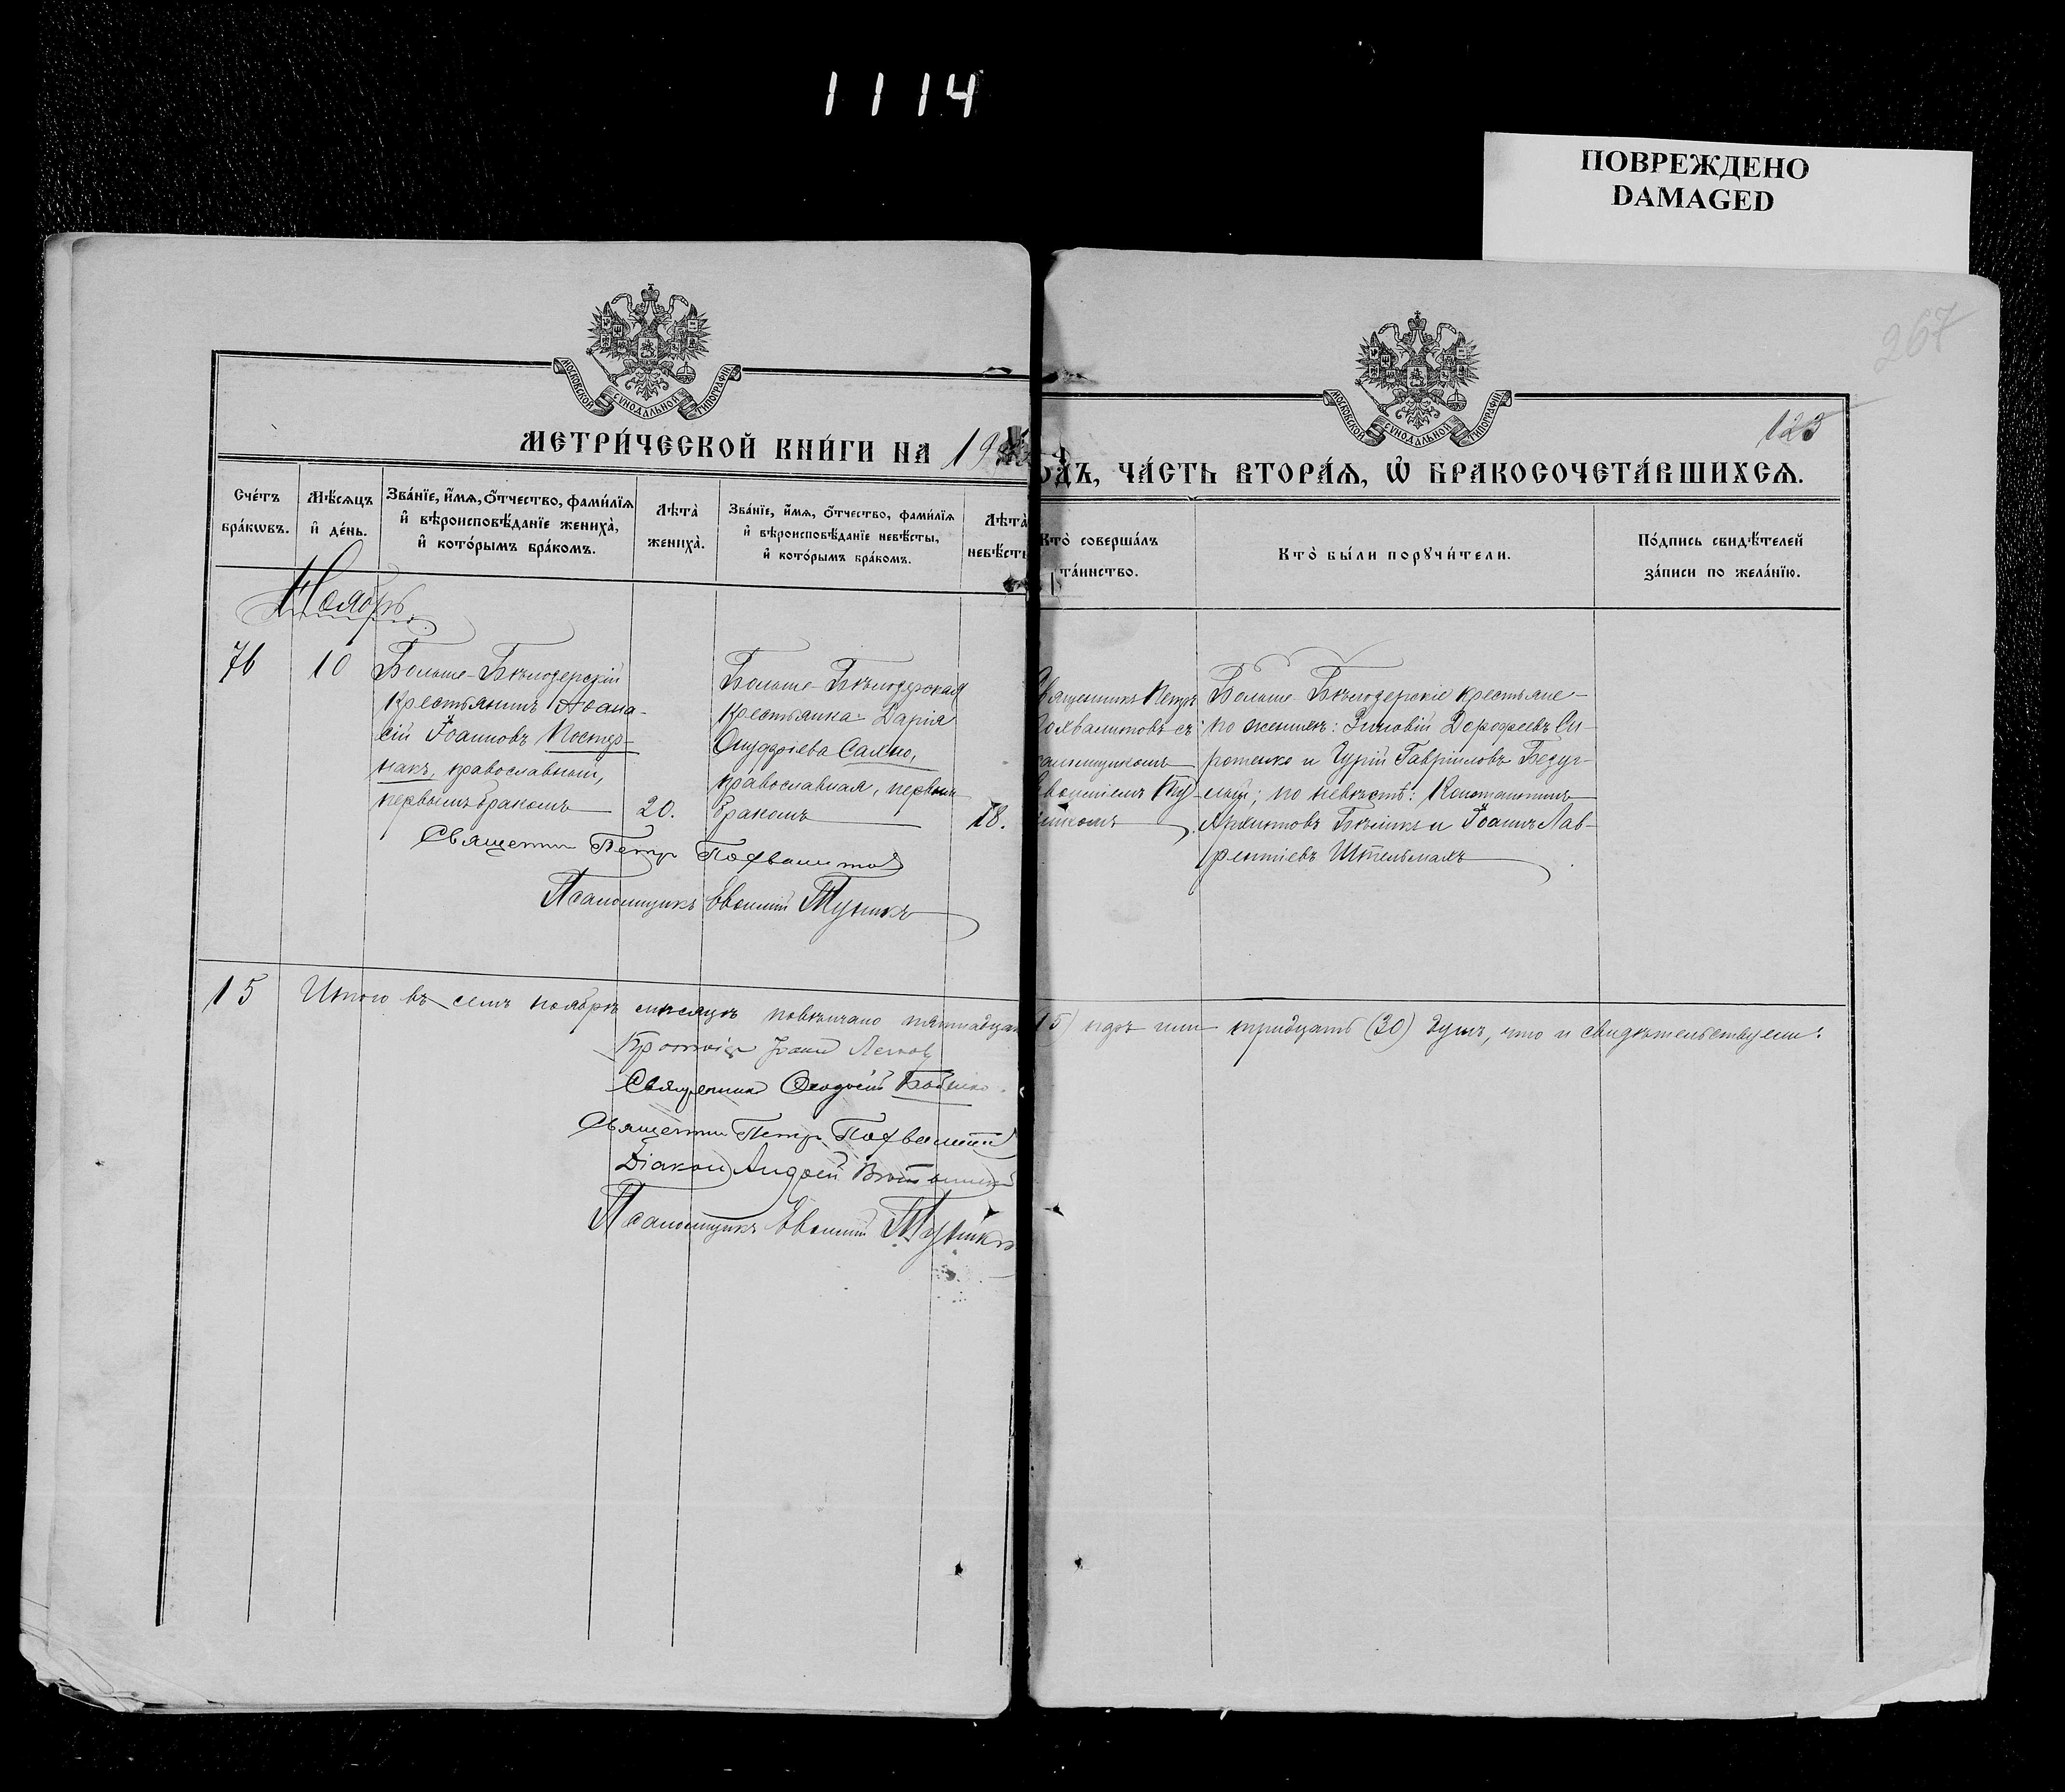 1114
ПОВРЕЖДЕНО
DAMAGED
267
МОСКОВСКОЙ СѴНОДАЛЬНОЙ ТИПОГРАФІИ
МОСКОВСКОЙ СѴНОДАЛЬНОЙ ТИПОГРАФІИ
123
МЕТРИ́ЧЕСКОЙ КНИ́ГИ НА 19
ОДЪ, ЧА́СТЬ ВТОРА́Ѧ, Ѡ҆ БРАКОСОЧЕТА́ВШИХСѦ.
Сче́тъ бра́кѡвъ.
Мѣ́сѧцъ и҆ де́нь.
Зва́нїе, и҆́мѧ, ѻ҆́тчество, фами́лїѧ и҆ вѣроисповѣ́данїе жениха̀, и҆ кото́рымъ бра́комъ.
Лѣта̀ жениха̀.
Зва́нїе, и҆́мѧ, ѻ҆́тчество, фами́лїѧ и҆ вѣроисповѣ́данїе невѣ́сты, и҆ кото́рымъ бра́комъ.
Лѣта̀ невѣ́сты
Кто̀ соверша́лъ та́инство.
Кто̀ бы́ли порꙋчи́тели.
По́дпись свидѣ́телей за́писи по жела́нїю.
Ноябрь
76
10
Больше-Бѣлозерскій
крестьянинъ Аѳана-
сій Іоанновъ Постер-
накъ, православный,
первымъ бракомъ
20.
Больше-Бѣлозерская
крестьянка Дарія
Онуфріева Сахно,
православная, первым
бракомъ
18.
Священникъ Петръ
Похвалитовъ съ
псаломщикомъ
Евѳиміемъ
Больше-Бѣлозерскіе крестьяне
по женихѣ: Зиновій Дороѳеевъ Си-
ротенко и Гурій Гавріиловъ Безуг-
лый; по невѣстѣ: Константинъ
Архиповъ Бѣликъ и Іоаннъ Лав-
рентіевъ Штельмахъ
Священник Петр Похвалитов
Псаломщикъ Евѳимій
15
Итого въ семъ ноябрѣ мѣсяцѣ повѣнчано пятнадцать
15) паръ или тридцать (30) душъ, что и свидѣтельствуемъ:
Протоіерей Іоанн
Священник Ѳеодосій
Священник Петр Похвалитов
Діакон Андрей
Псаломщикъ Евѳимій